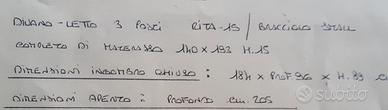 DIVANO-LETTO 3 POSTI RITA-15 / BRACCIOLO SMALL
COMPLETO DI MATERASSO 140 x 193 H.15
DIMENSIONI INGOMBRO CHIUSO: 184 x PROF 96 x H. 89 c
DIMENSIONI APERTO: PROFONDO CM. 205
Subito